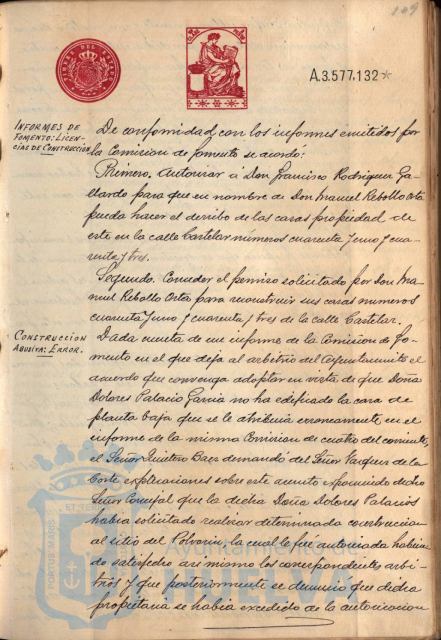 109
A.3.577,132*
INFORMES DE
FOMENTO: LICEN-
CIAS DE CONSTRUCCIÓN
De conformidad con los informes emitidos por
la Comision de fomento se acordó:
Primero. Autorizar a Don Francisco Rodriguez Ga-
llardo para que en nombre de Don Manuel Rebollo Orta
pueda hacer el derribo de las casas propiedad de
este en la calle Castelar números cuarenta y uno y cua-
renta y tres.
Segundo. Conceder el permiso solicitado por Don Ma-
nuel Rebollo Orta para reconstruir sus casas numeros
cuarenta y uno y cuarenta y tres de la calle Castelar.
CONSTRUCCION
ABUSIVA: ERROR.
Dada cuenta de un informe de la Comision de Fo-
mento en el que deja al arbitrio del Ayuntamiento el
acuerdo que convenga adoptar en vista de que Doña
Dolores Palacio Garcia no ha edificado la casa de
planta baja que se le atribuia erroneamente en el
informe de la misma Comision de cuatro del corriente,
el Señor Quintero Baez demandó del Señor Vazquez de la
Corte explicaciones sobre este asunto exponiendo dicho
Señor Concejal que la dicha Doña Dolores Palacios
habia solicitado realizar determinada construccion
al sitio del Polvorin, la cual le fué autorizada habien-
do satisfecho asi mismo los correspondientes arbi-
trios y que posteriormente se denunció que dicha
propietaria se habia excedido de la autorizacion
PORTUS MARIS
ET TERRE
Ayuntamiento
HUELVA